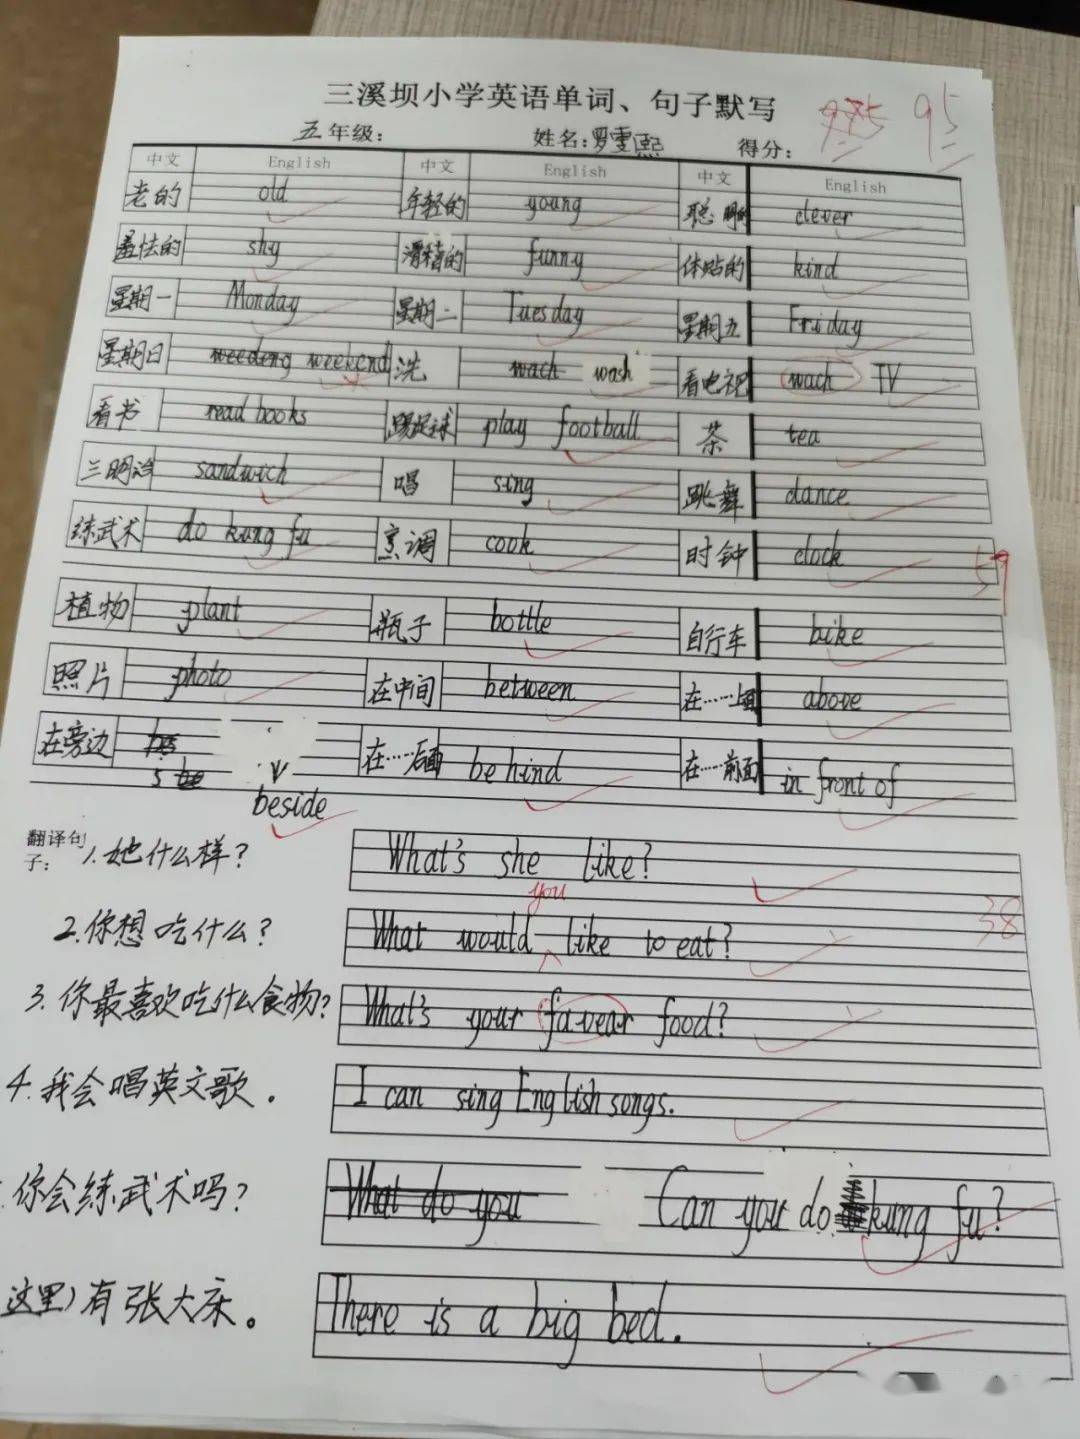 三溪坝小学英语单词、句子默写 95
五年级: 姓名: 罗雯熙 得分:
中文 English 中文 English 中文 English
老的 old 年轻的 young 聪明的 clever
羞怯的 shy 滑稽的 funny 体贴的 kind
星期一 Monday 星期二 Tuesday 星期五 Friday
星期日 weedeng weekend 洗 wach wash 看电视 wach TV
看书 read books 踢足球 play football 茶 tea
三明治 sandwich 唱 sing 跳舞 dance
练武术 do kung fu 烹调 cook 时钟 clock
植物 plant 瓶子 bottle 自行车 bike
照片 photo 在中间 between 在……上面 above
在旁边 在……后面 behind 在……前面 in front of
beside
翻译句子: 1.她什么样? What's she like?
you
2.你想吃什么? What would like to eat? 38
3.你最喜欢吃什么食物? What's your favear food?
4.我会唱英文歌。 I can sing English songs.
你会练武术吗? What do you Can you do kung fu?
这里)有张大床。 There is a big bed.